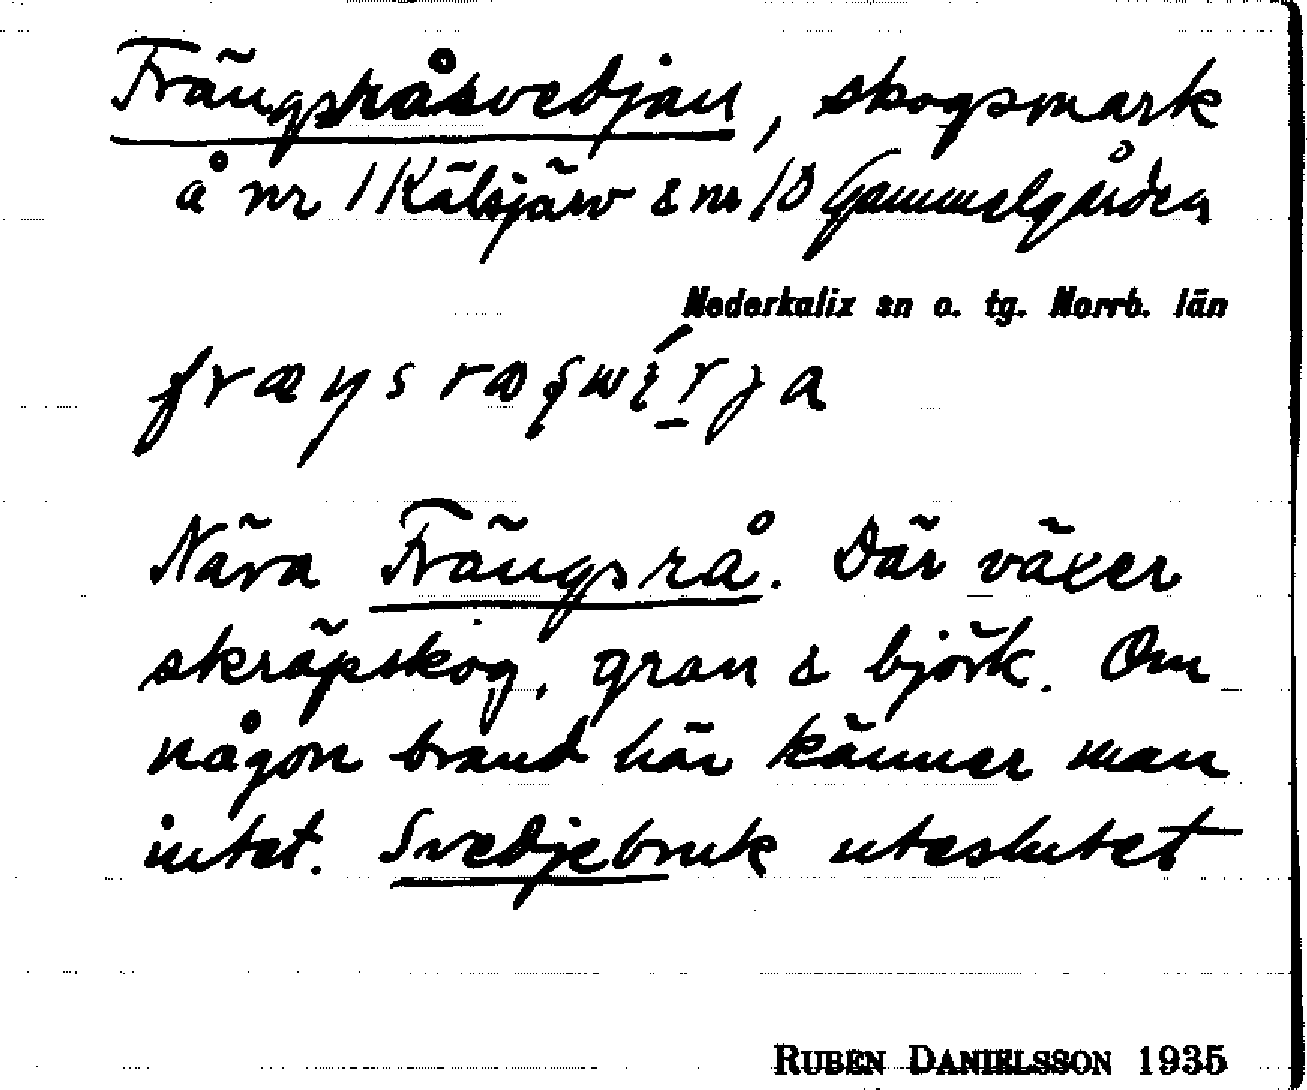 Frängsråsvedjan, skogsmark
å nr 1 Kälsjärv & nr 10 Gammelgården
Nederkalix sn o. tg. Norrb. län
Nära Frängsrå. Där växer
skräpskog, gran & björk. Om
någon brand här känner man
intet. Svedjebruk uteslutet
RUBEN DANIELSSON 1935